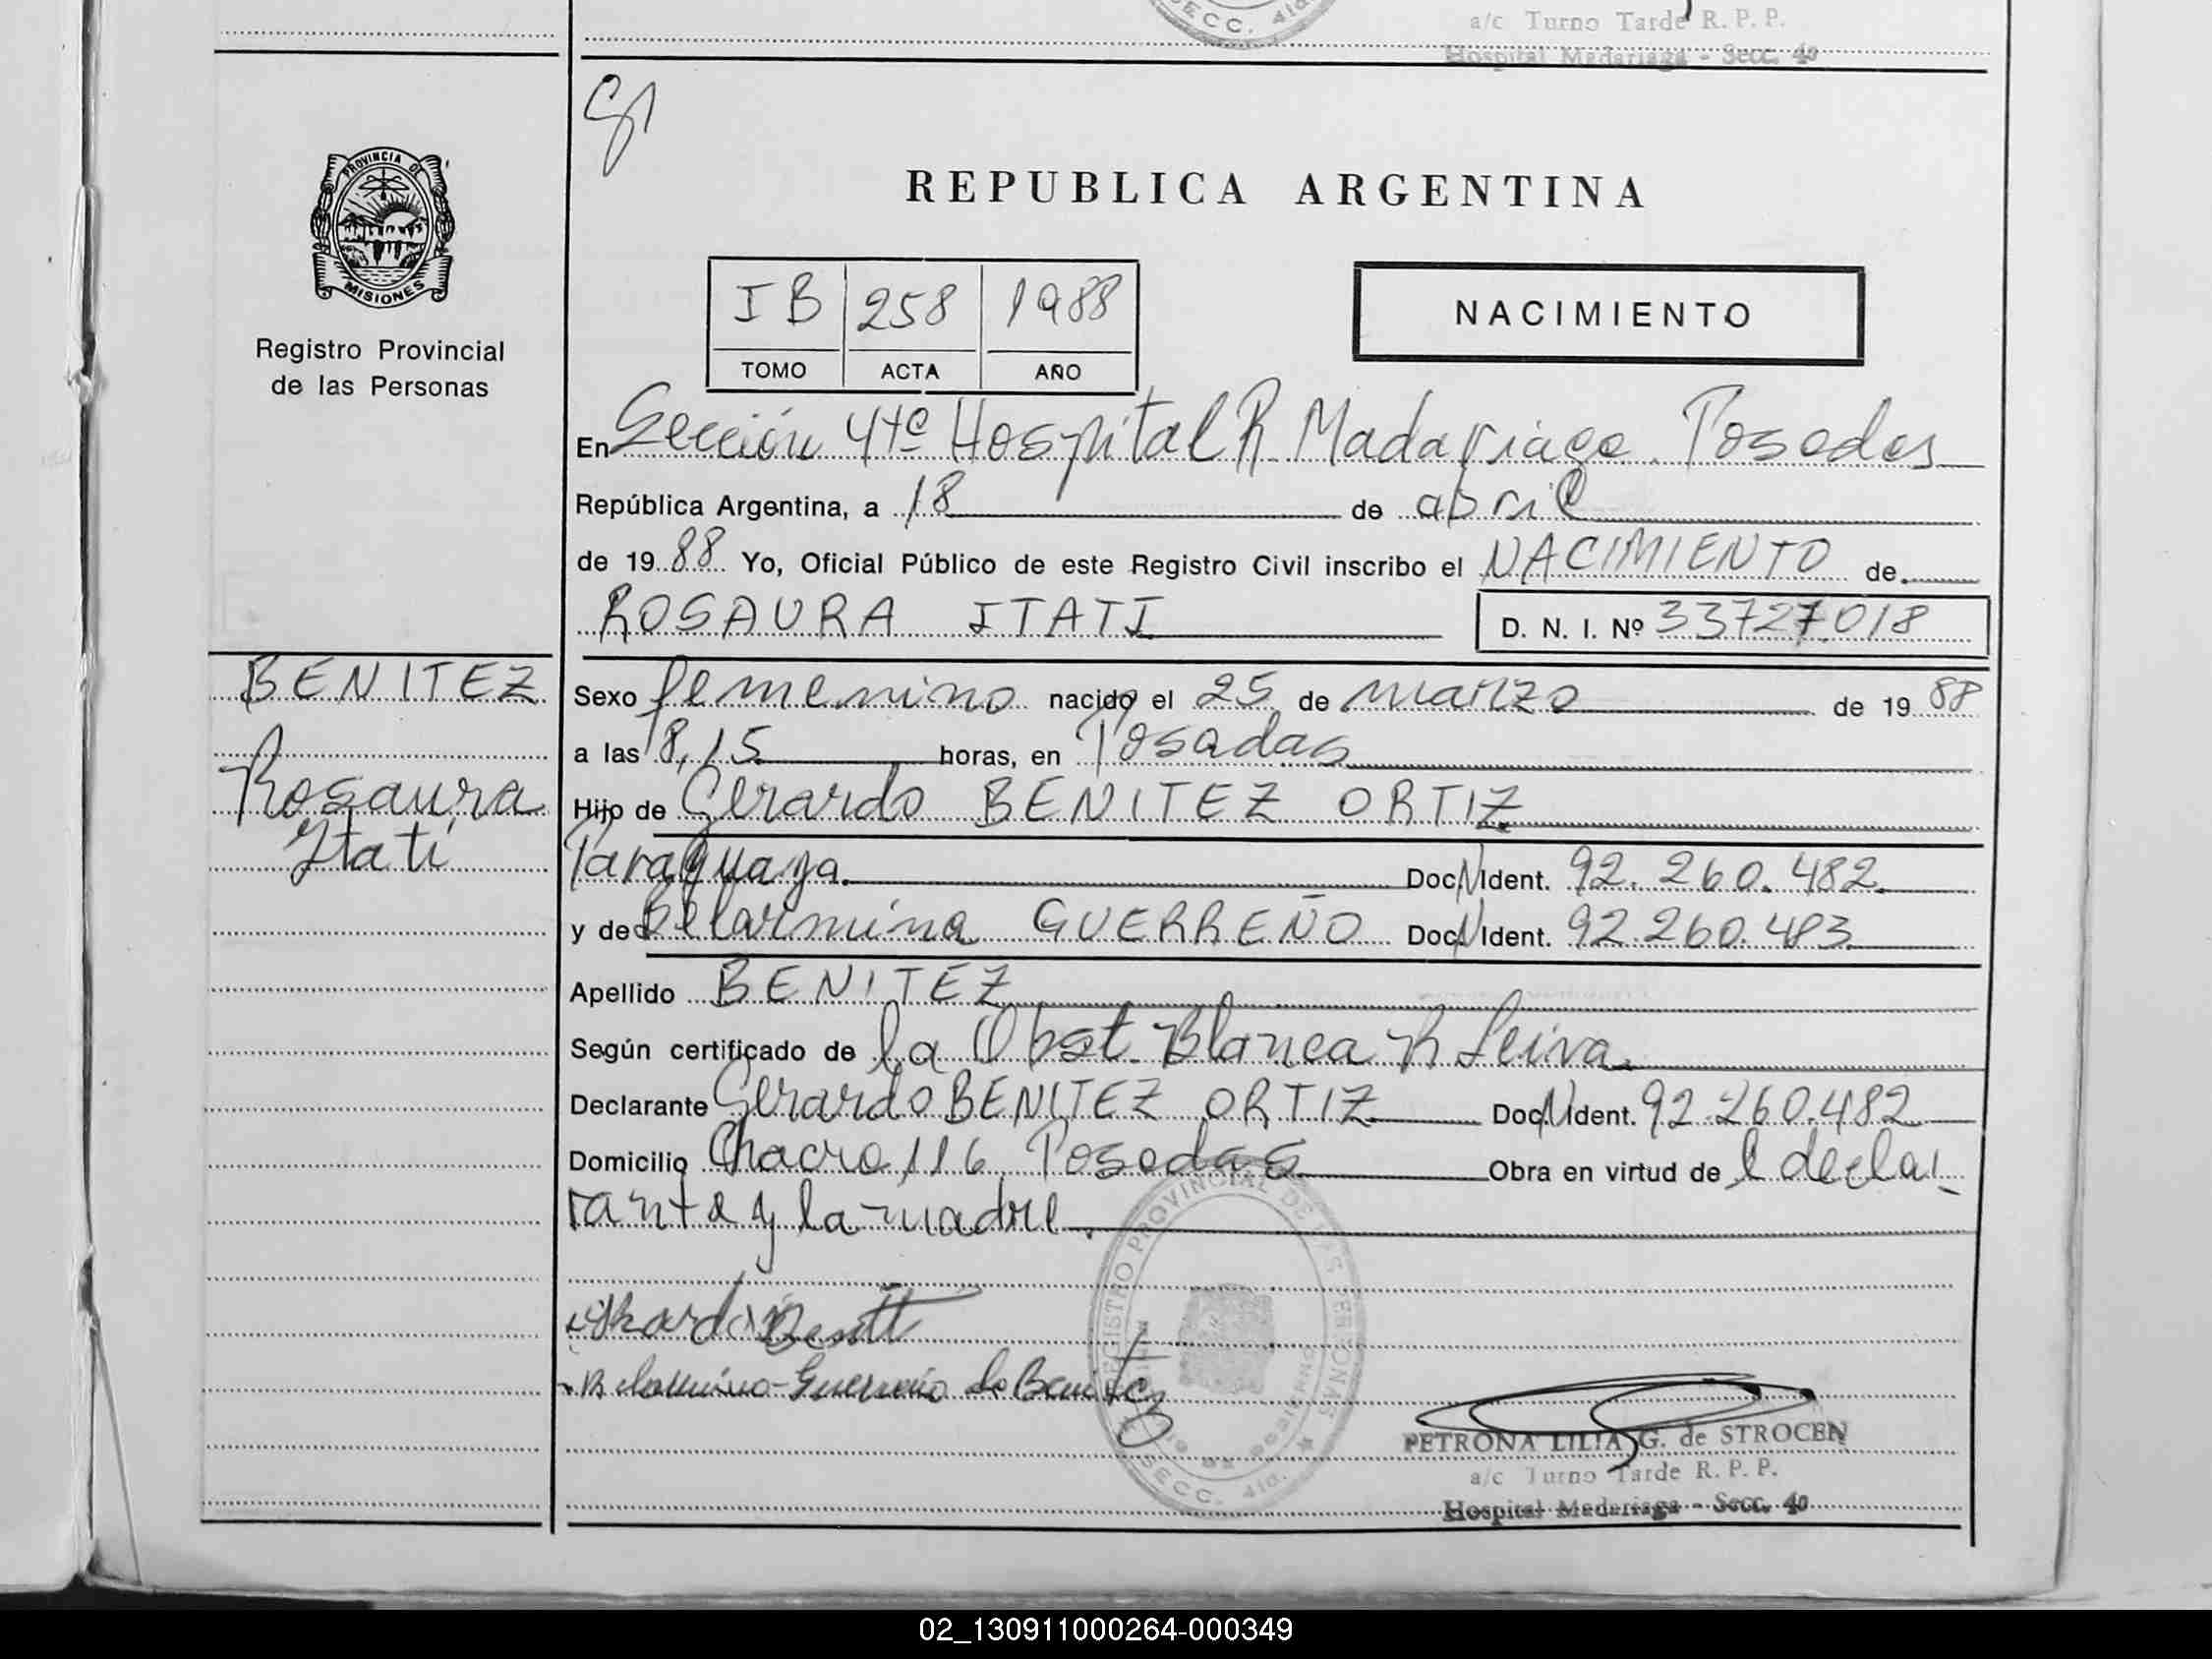 SECC. 4ta.
a/c Turno Tarde R. P. P.
Hospital Madariaga - Secc. 4a
PROVINCIA DE
MISIONES
Registro Provincial
de las Personas
REPUBLICA ARGENTINA
I B 258 1988
TOMO ACTA AÑO
NACIMIENTO
En Sección 4ta Hospital R Madariaga. Posadas
República Argentina, a 18 de abril
de 1988 Yo, Oficial Público de este Registro Civil inscribo el NACIMIENTO de
ROSAURA ITATI D. N. I. Nº 33727.018
BENITEZ
Rosaura
Itatí
Sexo femenino nacido el 25 de marzo de 1988
a las 8,15 horas, en Posadas
Hijo de Gerardo BENITEZ ORTIZ
Paraguaya. Doc. N Ident. 92.260.482
y de Belarmina GUERREÑO Doc. N Ident. 92.260.483
Apellido BENITEZ
Según certificado de la Obst. Blanca R Leiva
Declarante Gerardo BENITEZ ORTIZ Doc. N Ident. 92.260.482
Domicilio Chacra 116 Posadas Obra en virtud de l decla
rante y la madre.
REGISTRO PROVINCIAL DE LAS PERSONAS
SECC. 4ta.
Belarmina Guerreño de Benitez
PETRONA LILIA G. de STROCEN
a/c Turno Tarde R. P. P.
Hospital Madariaga - Secc. 4a
02_130911000264-000349